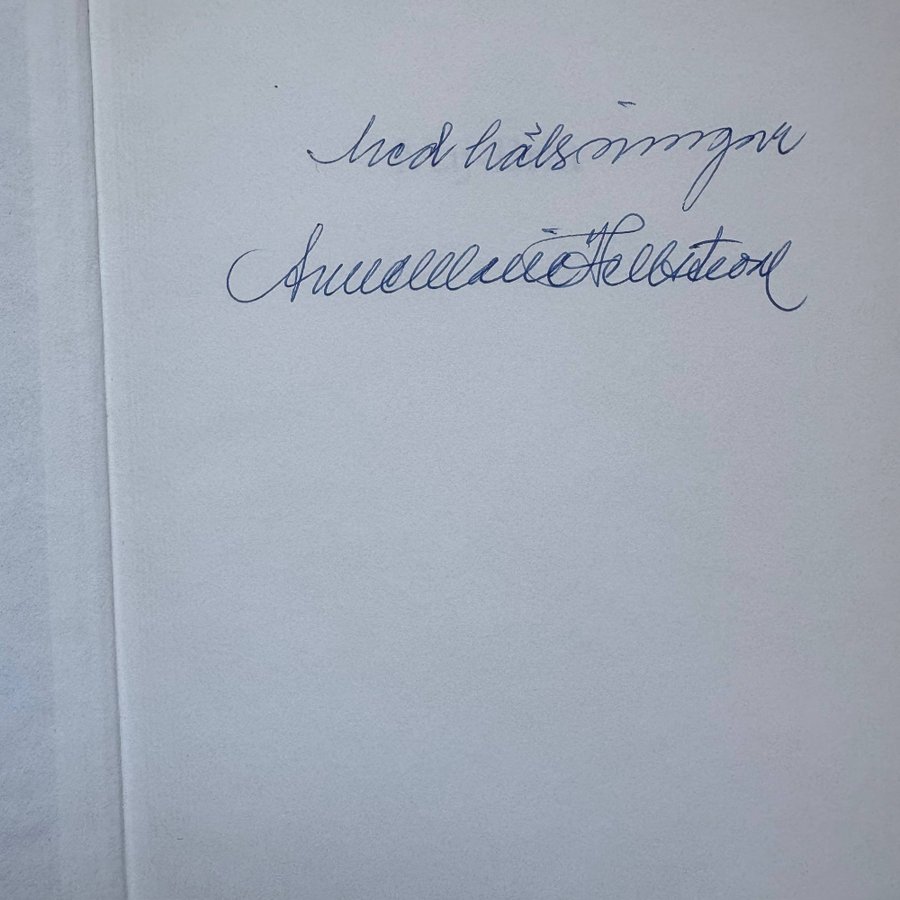 Med hälsningar
Anna Maria Hellström